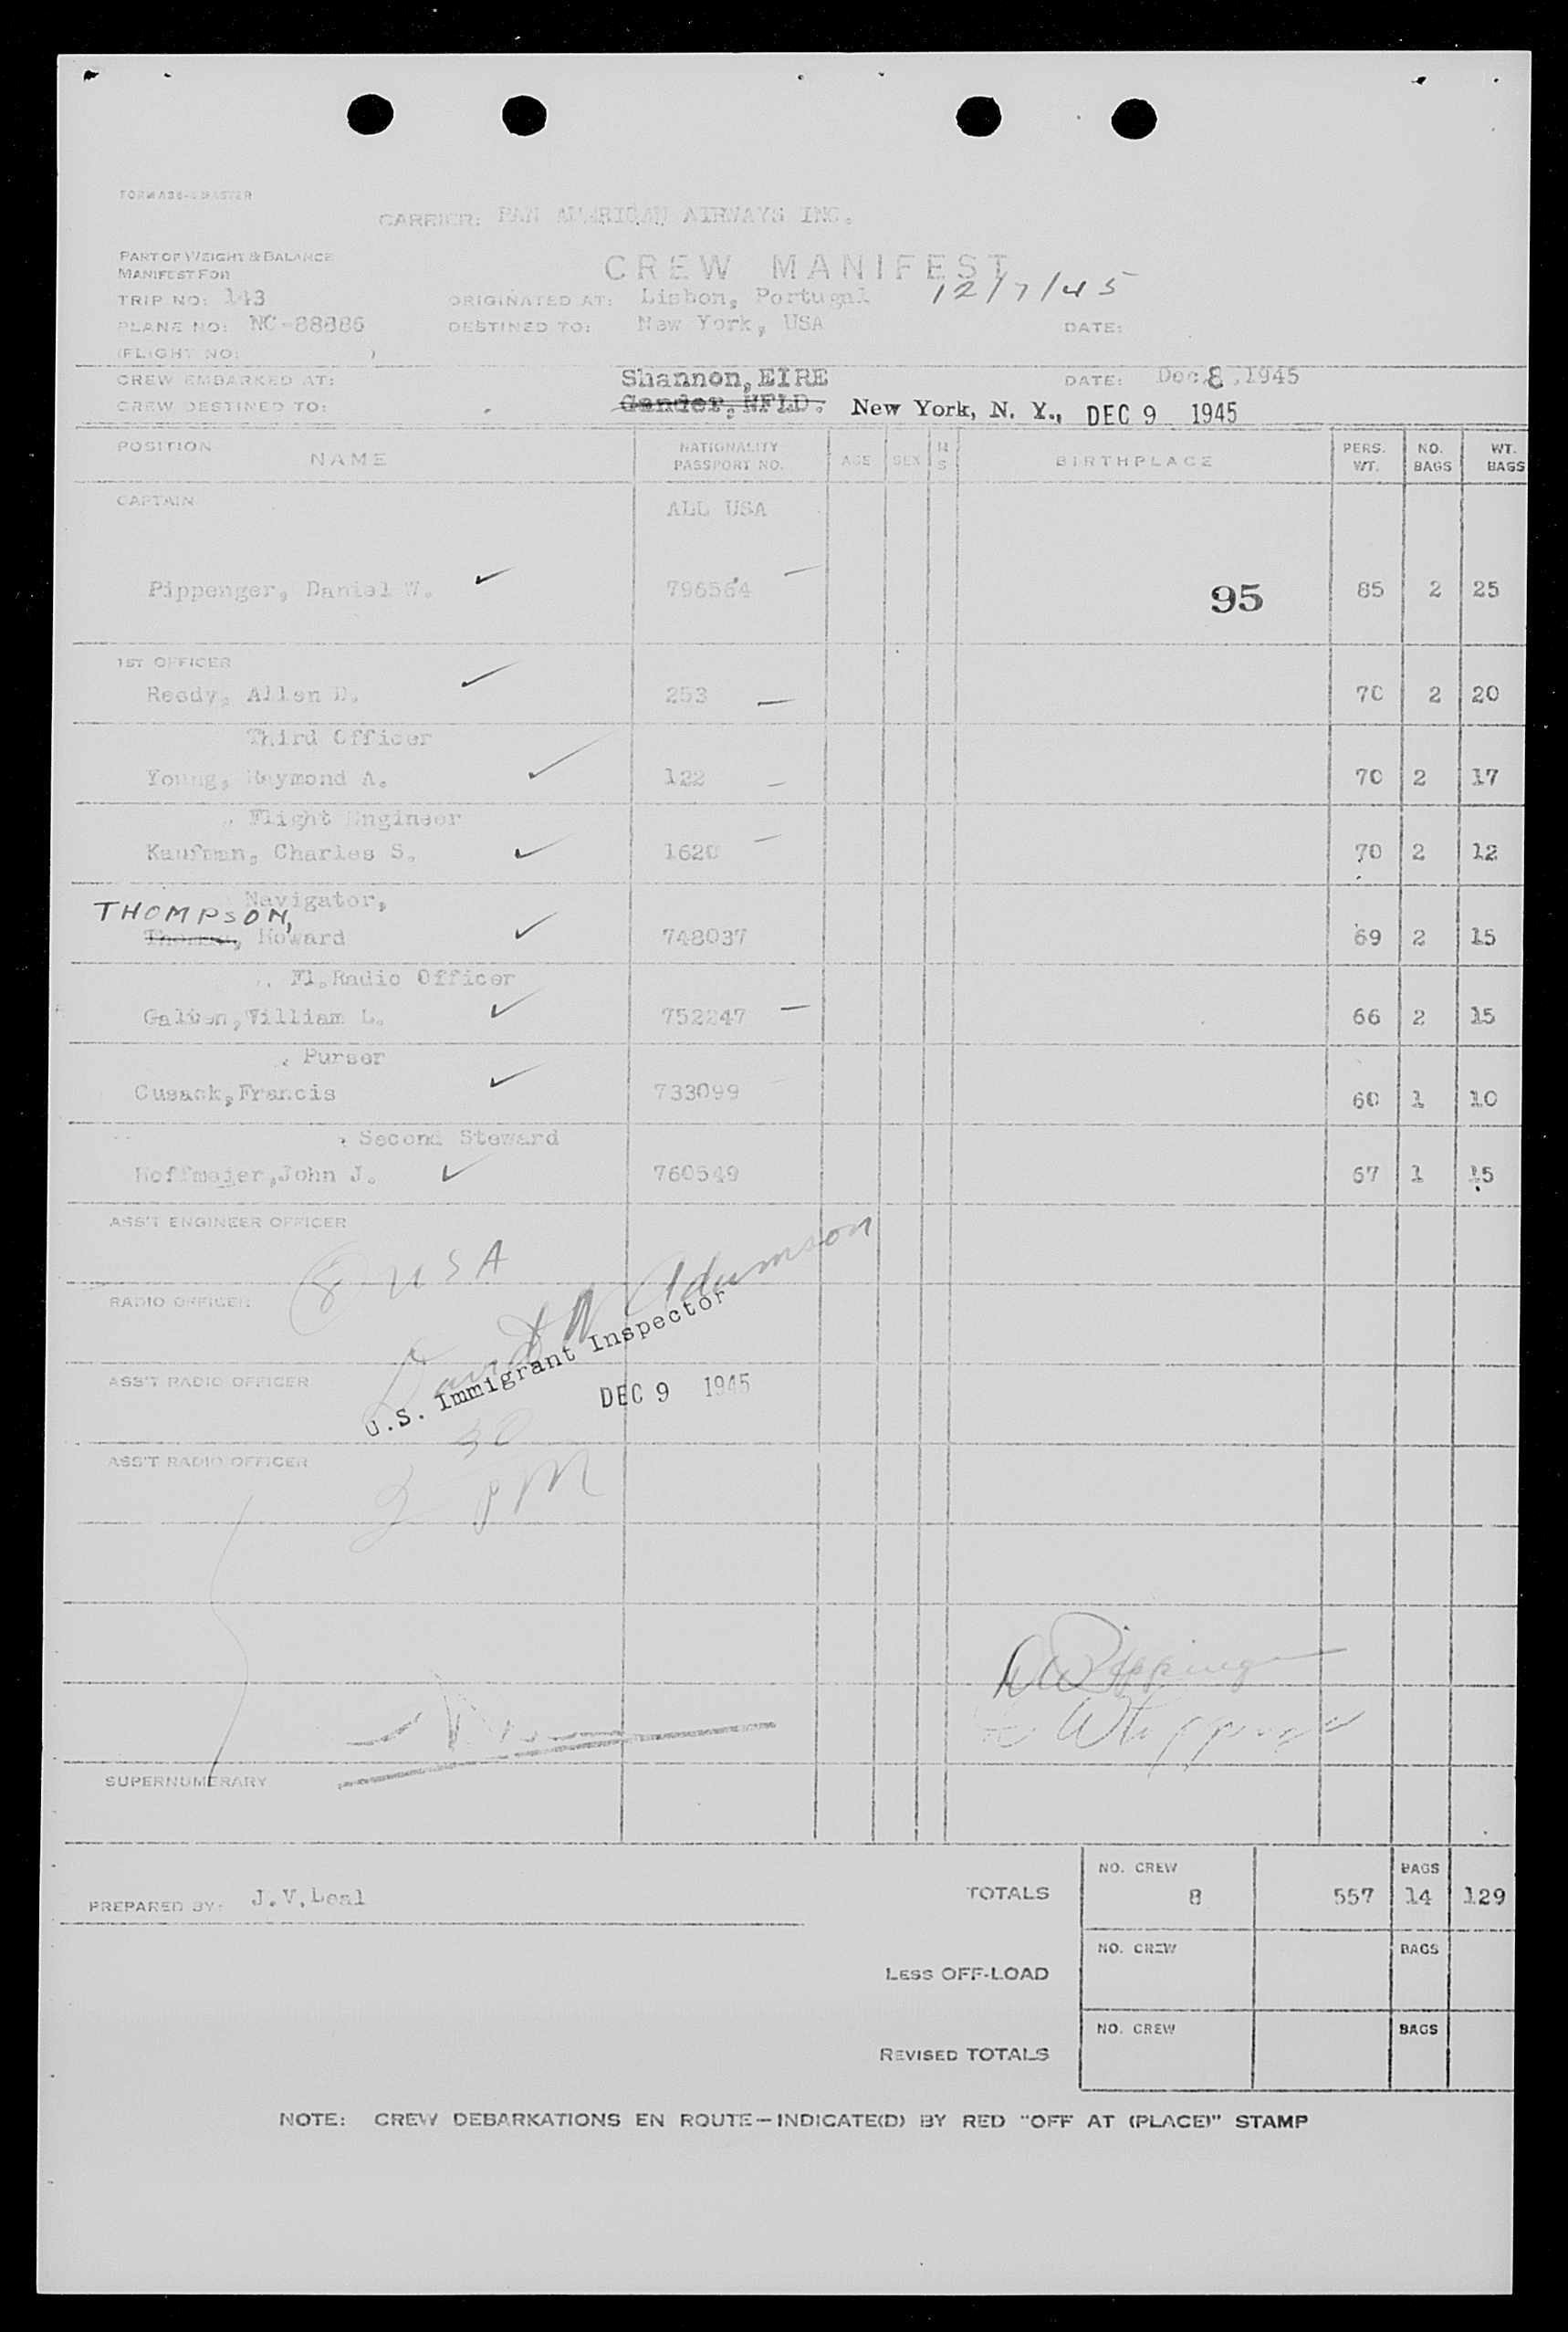 CARRIER: PAN AMERICAN AIRWAYS INC.
PART OF WEIGHT & BALANCE
MANIFEST FOR
CREW MANIFEST
12/7/45
TRIP NO: 143 ORIGINATED AT: Lisbon, Portugal
PLANE NO: NC-88886 DESTINED TO: New York, USA DATE:
(FLIGHT NO: )
CREW EMBARKED AT: Shannon, EIRE DATE: Dec. 8, 1945
CREW DESTINED TO: Gander, NFLD. New York, N. Y., DEC 9 1945
POSITION NAME NATIONALITY PASSPORT NO. AGE SEX BIRTHPLACE PERS. WT. NO. BAGS WT. BAGS
CAPTAIN ALL USA
Pippenger, Daniel W. 796564 95 85 2 25
1ST OFFICER
Reedy, Allen D. 253 70 2 20
Third Officer
Young, Raymond A. 122 70 2 17
Flight Engineer
Kaufman, Charles S. 1620 70 2 12
Navigator,
THOMPSON,
Howard 748037 69 2 15
Fl. Radio Officer
William L. 752247 66 2 15
Purser
Cusack, Francis 733099 60 1 10
Second Steward
Hoffmajer, John J. 760549 67 1 15
ASS'T ENGINEER OFFICER
8 USA
RADIO OFFICER
David Adamson
U.S. Immigrant Inspector
ASS'T RADIO OFFICER
DEC 9 1945
ASS'T RADIO OFFICER
30
PM
DW Pippenger
SUPERNUMERARY
PREPARED BY: J.V. Leal
TOTALS NO. CREW 8 557 BAGS 14 129
LESS OFF-LOAD NO. CREW BAGS
REVISED TOTALS NO. CREW BAGS
NOTE: CREW DEBARKATIONS EN ROUTE—INDICATE(D) BY RED "OFF AT (PLACE)" STAMP